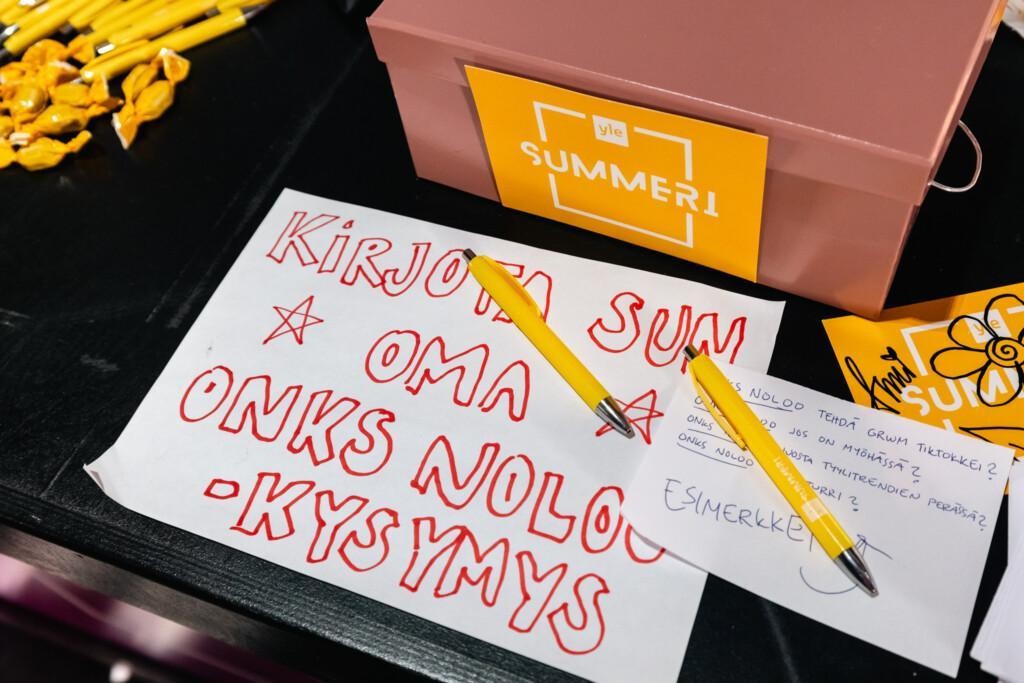 yle
SUMMERI
KIRJOTA SUN
OMA
ONKS NOLOO
-KYSYMYS
yle
SUMM
ONKS NOLOO TEHDÄ GRWM TIKTOKKEI?
JOS ON MYÖHÄSSÄ?
ONKS TYYLITRENDIEN PERÄSSÄ?
ONKS NOLOO
ESIMERKKE